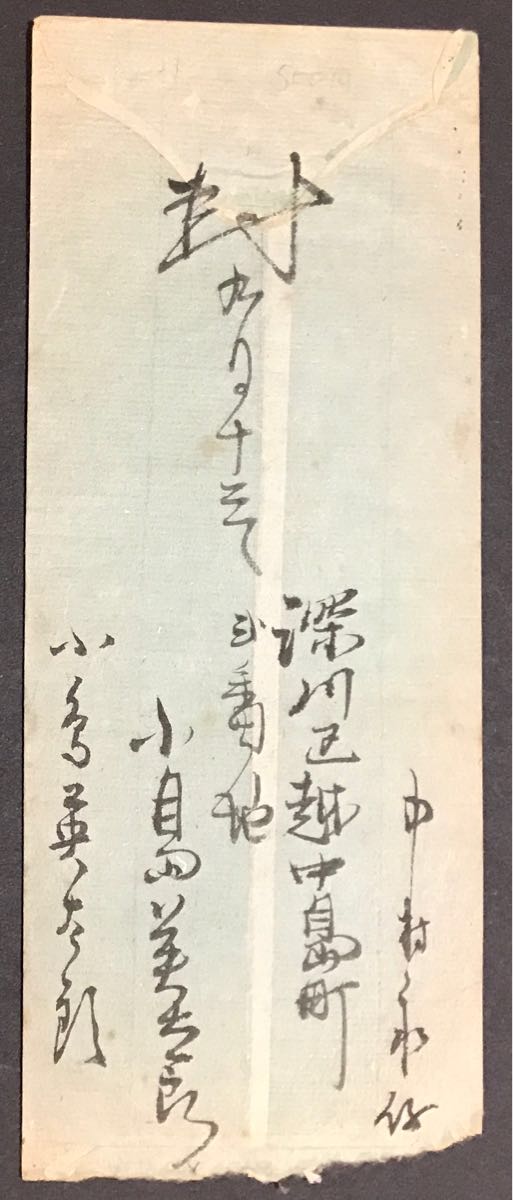 封
九月十三日
中村
深川区越中島町
弐番地
小島英太郎
小島英太郎